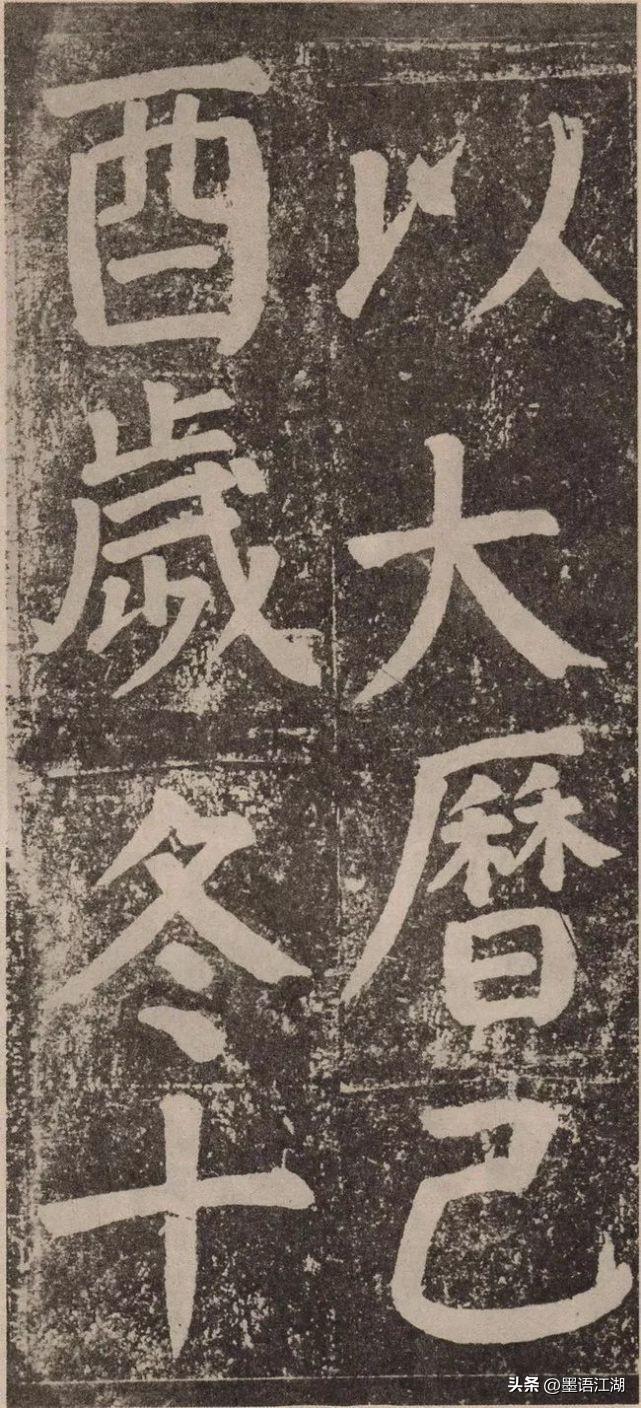 以大曆己
酉歲冬十
头条 @墨语江湖